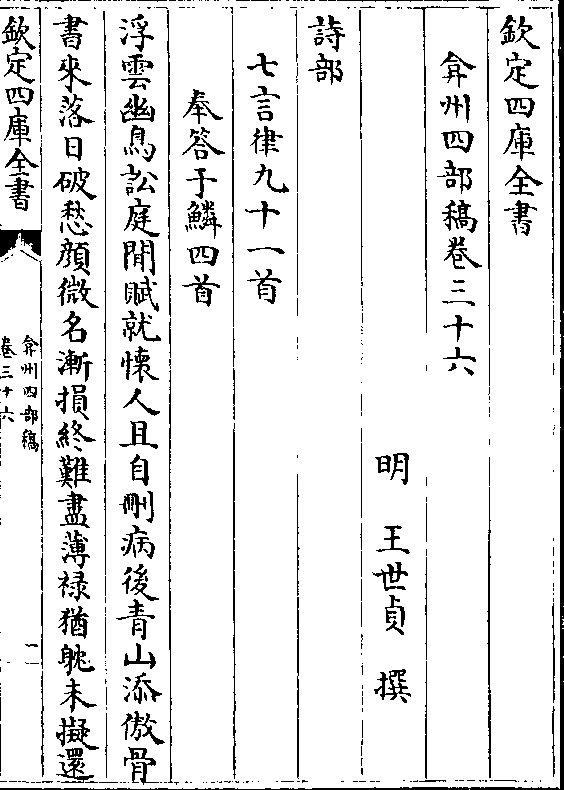 欽定四庫全書
弇州四部稿卷三十六
明 王世貞 撰
詩部
七言律九十一首
奉答于鱗四首
浮雲幽鳥訟庭閒賦就懷人且自刪病後青山添傲骨
書來落日破愁顏微名漸損終難盡薄禄猶躭未擬還
欽定四庫全書
弇州四部稿
卷三十六
一